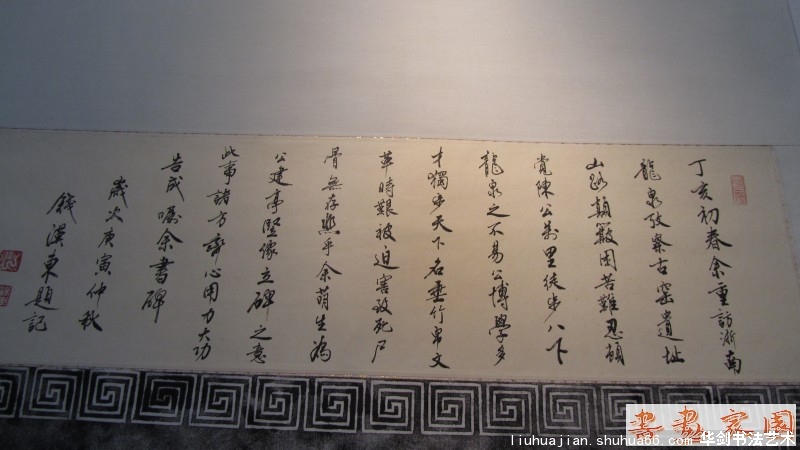 丁亥初春余重訪浙南
龍泉攷察古窑遺址
山路顛簸困苦難忍頓
覺陳公萬里徒步八下
龍泉之不易公博學多
才獨步天下名垂竹帛文
革時艱被迫害致死尸
骨無存悲乎余萌生為
公建亭堅像立碑之意
此事諸方齊心用力大功
告成囑余書碑
歲次庚寅仲秋
錢漢東題記
書畫家園
liuhuajian.shuhua66.com 华剑书法艺术